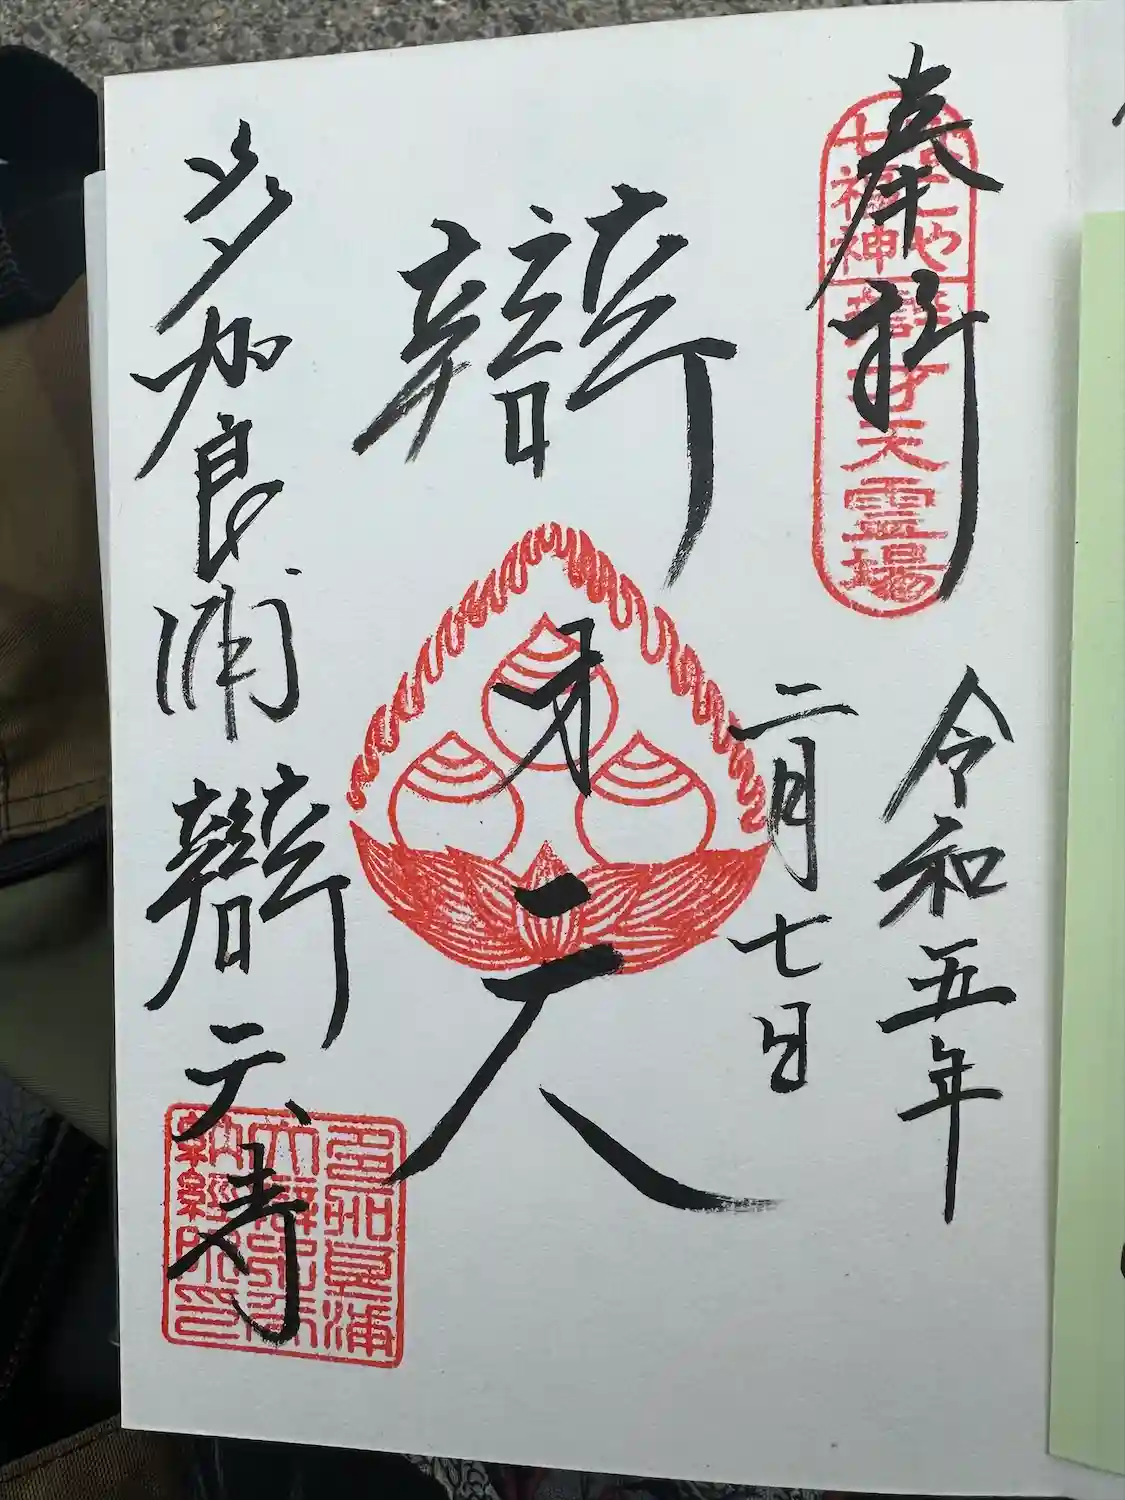 奉拝
なごや
七福神
辯才天霊場
令和五年
二月七日
辯才天
多加良浦 辯天寺
多加良浦
大辯
納経所印